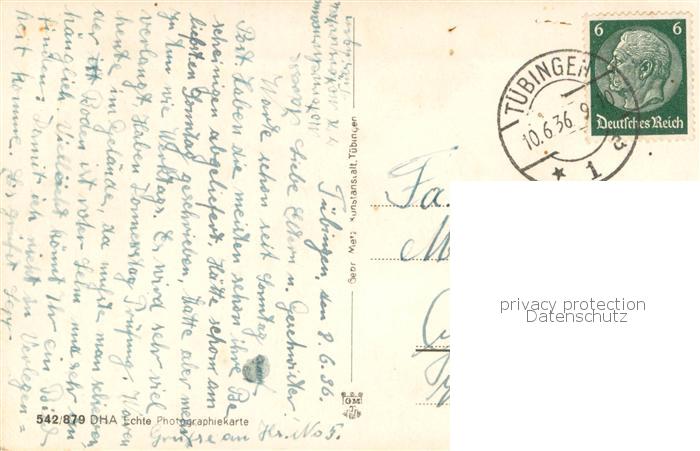 Tübingen, den 8.6.36.
Liebe Eltern u. Geschwister
Warte schon seit Sonntag auf
Post. Haben die meisten schon ihre Be
scheinigen abgeliefert. Hätte schon am
liebsten Sonntag geschrieben, hatte aber mein
zu Tun wie Werktags. Es wird sehr viel
verlangt. Haben Donnerstag Prüfung. Waren
heute im Gelände, da mußte man schieben
der ist Boden ist roter Lehm und sehr
hänglich. Vielleicht könnt Ihr ein
finden. Damit ich nicht in Verlegen=
heit komme. Es grüßt
Grüsse an Hr. No 5.
Gebr. Metz, Kunstanstalt, Tübingen
542/879 DHA Echte Photographiekarte
GM
T
TÜBINGEN
10.6.36. 9
* 1 a
6 6
Deutsches Reich
Fa.
privacy protection
Datenschutz